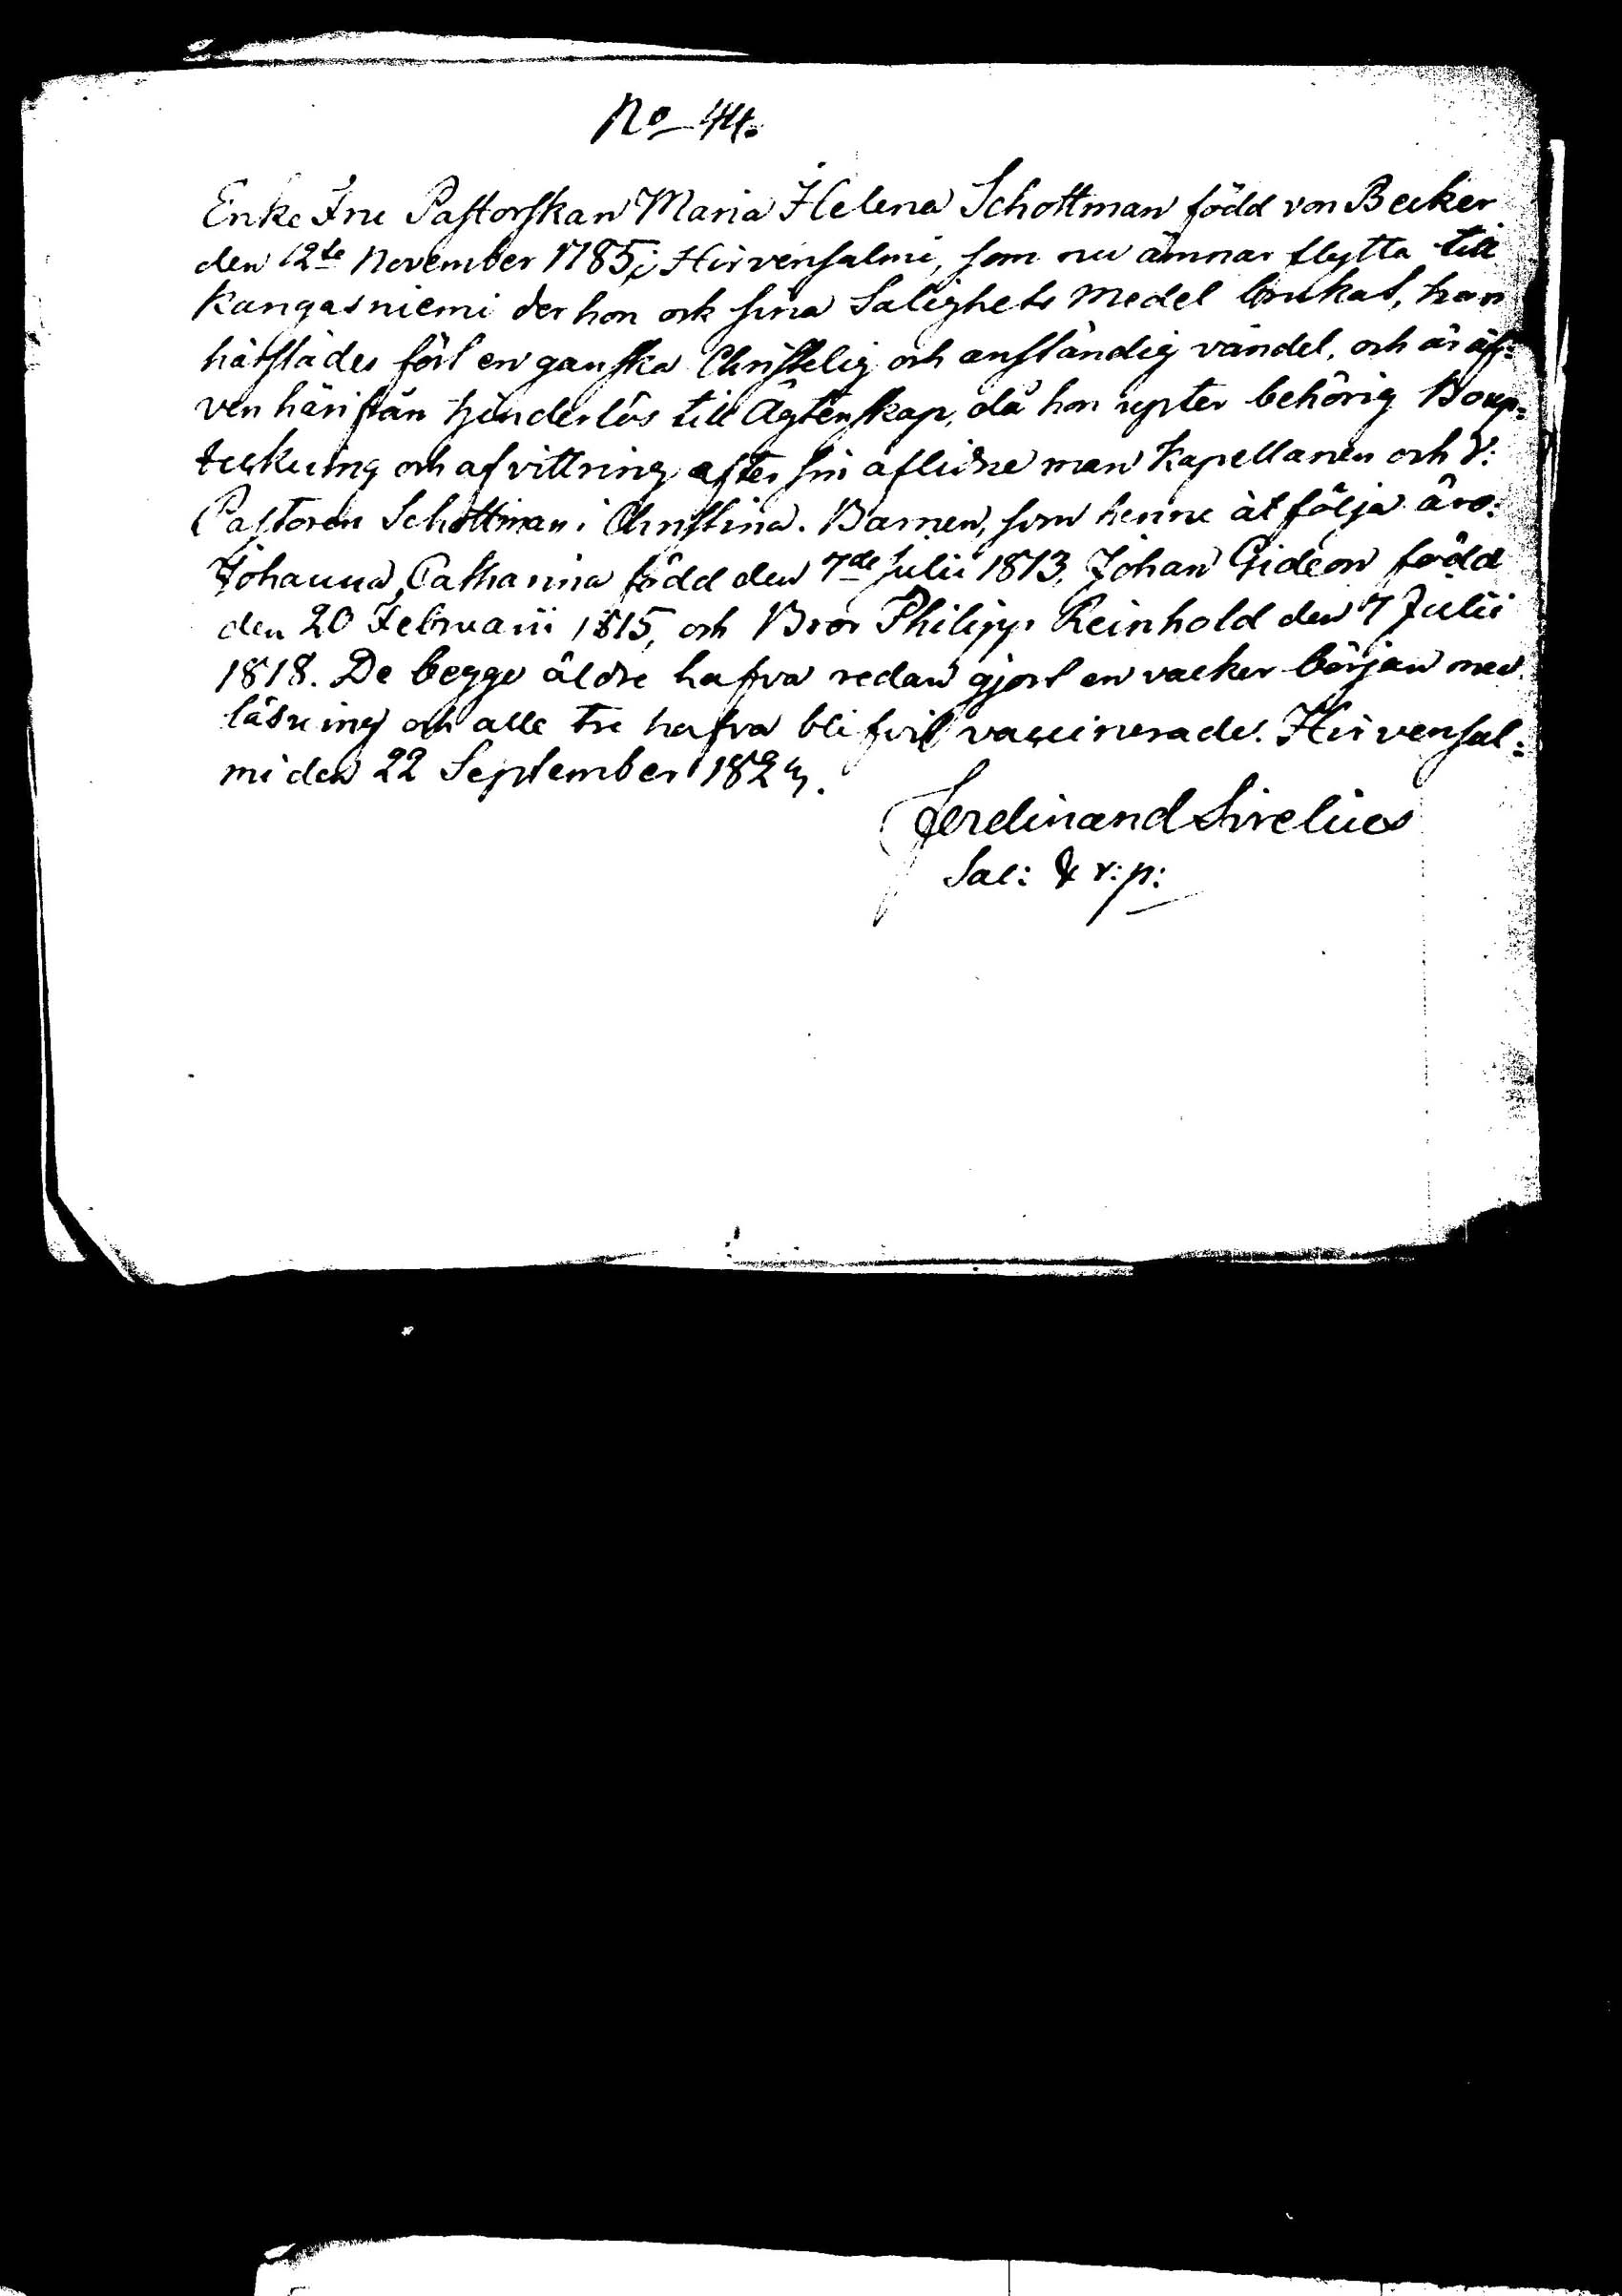 No 44.
Enke Fru Pastorskan Maria Helena Schottman född von Becker
den 12te November 1785 i Hirvensalmi, som nu ämnar flytta till
Kangasniemi der hon ock sina Salighets Medel brukat, har
härstädes fört en ganska Christelig och anständig vandel, och är äf=
ven härifrån hinderlös till Ägtenskap, då hon upter behörig Boup=
teckning och afvittring after sin aflidne man Kapellanen och V:
Pastoren Schottman i Christina. Barnen, som henne åtfölja äro:
Johanna Catharina född den 7de Julii 1813, Johan Gideon född
den 20 Februarii 1815, och Bror Philipp Reinhold den 7 Julii
1818. De begge äldre hafva redan gjort en vacker början med
läsning och alle tre hafva blifvit vaccinerade. Hirvensal=
mi den 22 September
Ferdinand Sirelius
Sac: & v: p: